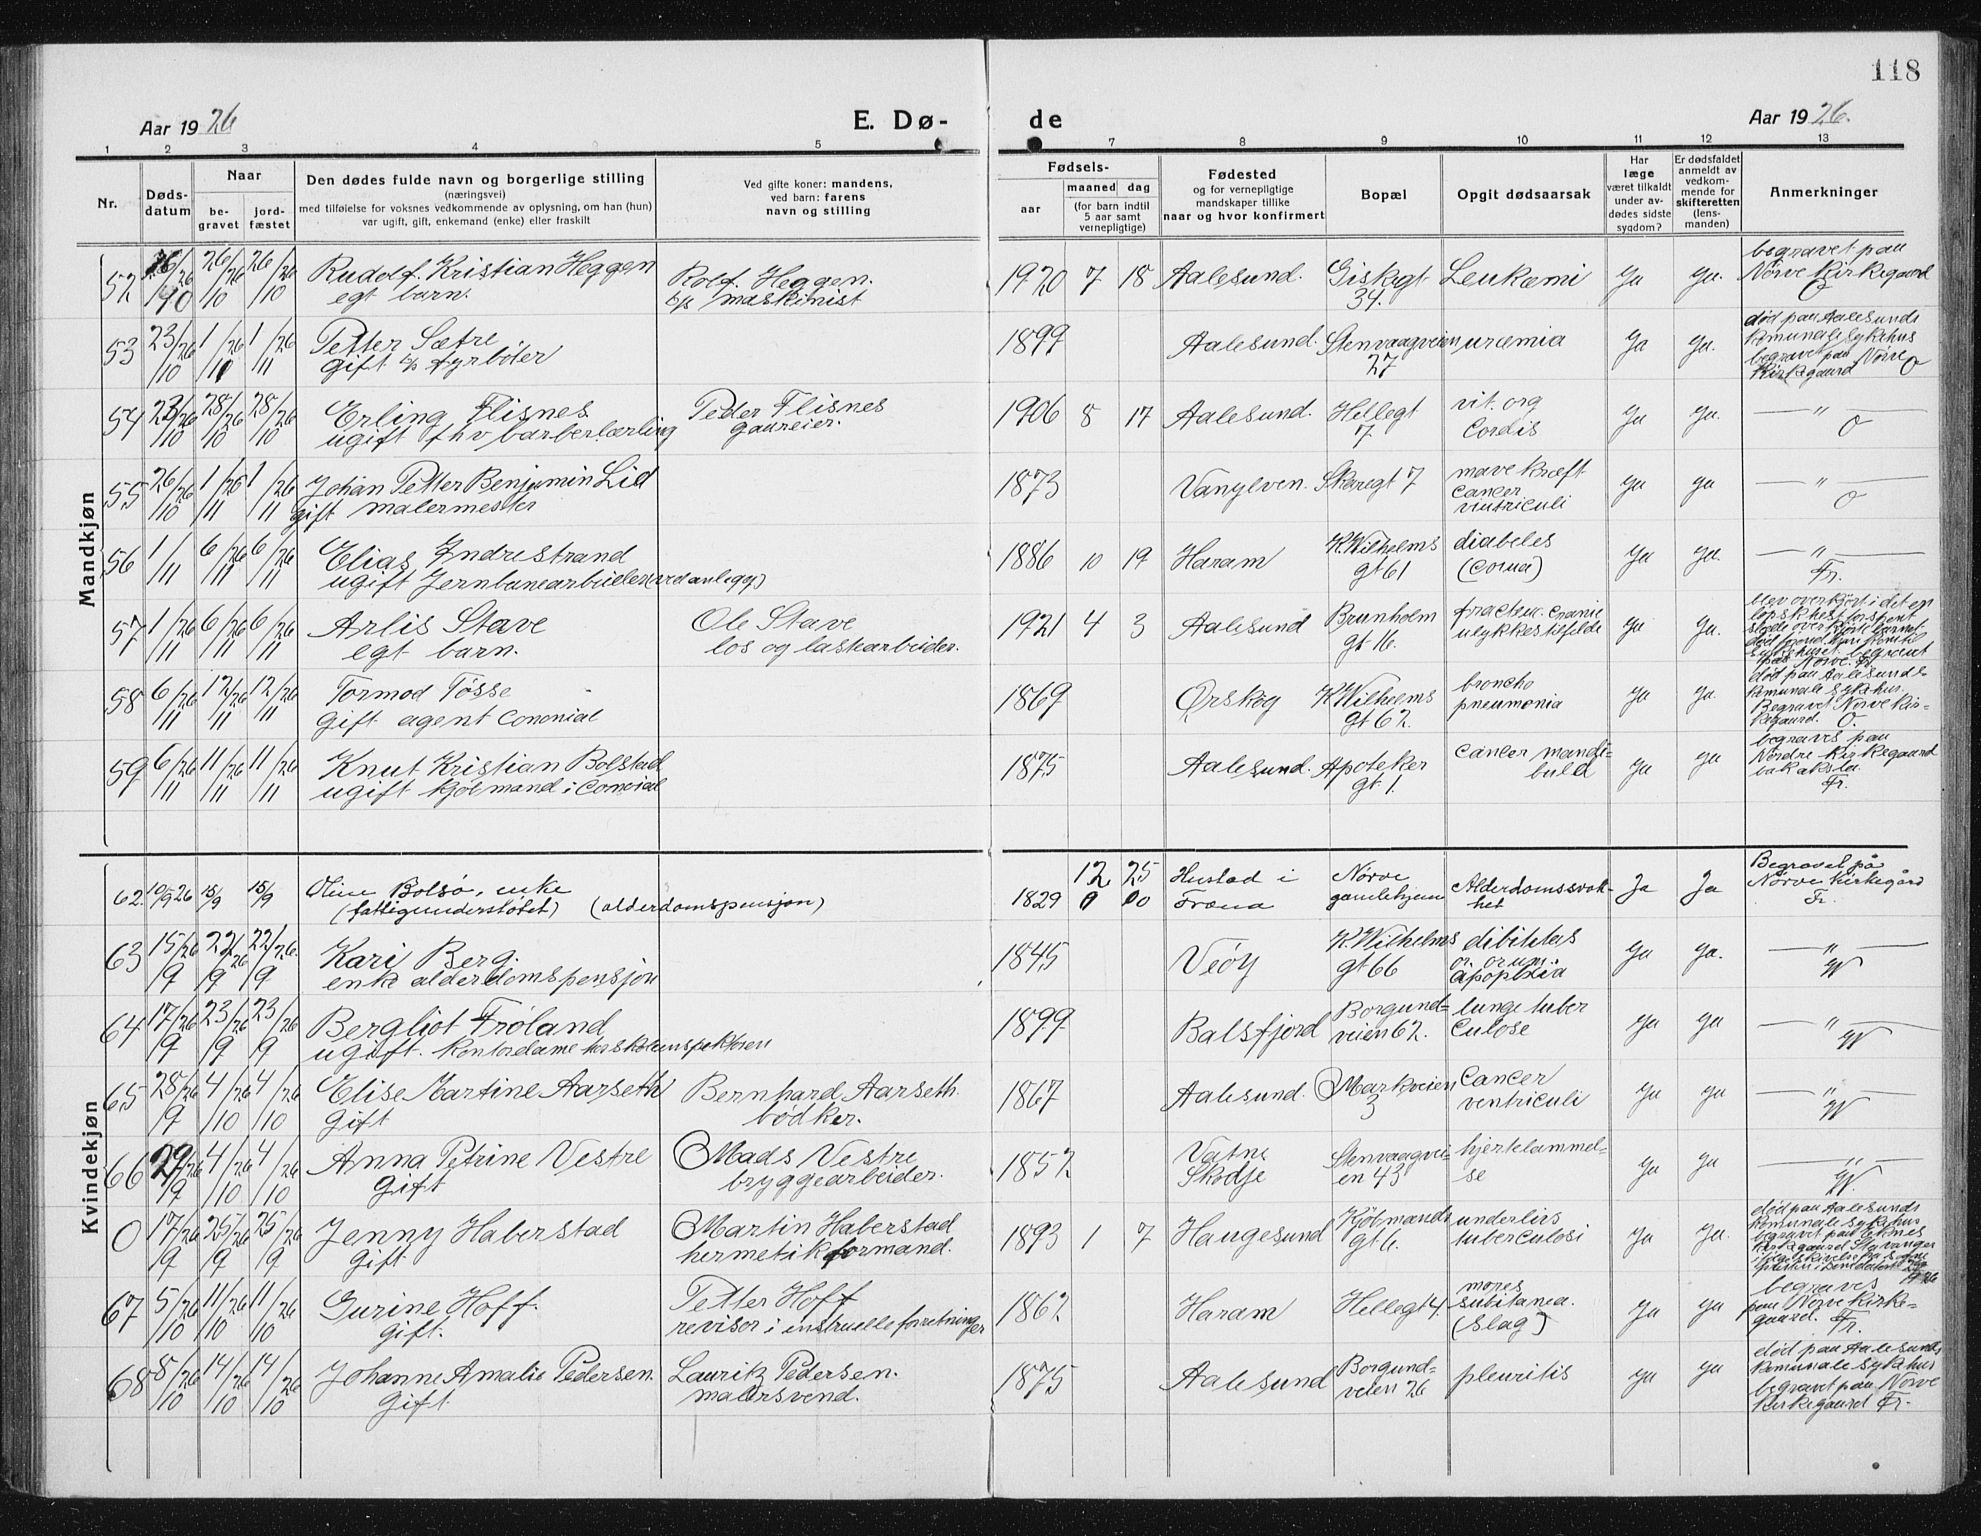 118
Aar 1926
E. Dø-
de
Aar 1926.
1 2 3 4 5 7 8 9 10 11 12 13
Nr.
Døds-
datum
Naar
be-
gravet
jord-
fæstet
Den dødes fulde navn og borgerlige stilling
(næringsvei)
med tilføielse for voksnes vedkommende av oplysning, om han (hun)
var ugift, gift, enkemand (enke) eller fraskilt
Ved gifte koner: mandens,
ved barn: farens
navn og stilling
Fødsels-
aar
maaned dag
(for barn indtil
5 aar samt
vernepligtige)
Fødested
og for vernepligtige
mandskaper tillike
naar og hvor konfirmert
Bopæl
Opgit dødsaarsak
Har
læge
været tilkaldt
under av-
dødes sidste
sygdom?
Er dødsfaldet
anmeldt av
vedkom-
mende for
skifteretten
(lens-
manden)
Anmerkninger
Mandkjøn
52 26/10 26 26/10 26 Rudolf Kristian Heggen Rolf Heggen. 1920 7 18 Aalesund. Giskegt Leukæmi Ja Ja. begravet paa
egt barn. maskinist 34. Nørve Kirkegaard
O
53 23/10 26 1/11 26 1/11 26 Petter Sætre 1899 Aalesund. Stenvaagveien uræmia Ja Ja. død paa Aalesunds
gift fyrbøter 27 komunale sykehus
begravet paa Nørve
Kirkegaard O
54 23/10 26 28/10 26 28/10 26 Erling Flisnes Peder Flisnes 1906 8 17 Aalesund. Hellegt vit. org Ja Ja. — " —
ugift fhv barberlærling gaureier. 7 Cordis O
55 26/10 26 1/11 26 1/11 26 Johan Petter Benjamin Lid 1873 Vanylven. Skaregt 7 mavekræft Ja Ja — " —
gift malermester cancer O
ventriculi
56 1/11 6/11 26 6/11 26 Elias Indrestrand 1886 10 19 Haram K. Wilhelms diabetes Ja Ja. — " —
ugift Jernbanearbeider (ved anlegg) gt 61 (Coma) Fr.
57 1/11 26 6/11 26 6/11 26 Arlis Stave Ole Stave 1921 4 3 Aalesund Brunholm fractur. cranie Ja Ja. blev overkjørt i det en
egt barn. los og laskarbeider. gt 16. ulykkestilfelde løpsk hest forspent
begravet
paa Nørve Fr.
58 6/11 26 12/11 26 12/11 26 Tormod Tøsse 1869 Ørskog K Wilhelms broncho Ja Ja. død paa Aalesunds
gift agent gt 62. pneumonia komunale sykehus.
Begravet Nørve Kir-
kegaard. O.
59 6/11 26 11/11 26 11/11 26 Knut Kristian Bolstad 1875 Aalesund. Apoteker cancer mandi- Ja Ja begraves paa
ugift kjøbmand i gt 1. buld Nørdre Kirkegaard
bak aksla.
Fr.
Kvindekjøn
62. 10/9 26 15/9 15/9 Oline Bolsø, enke 1829 12 25 Hustad i Nørve Alderdomssvak- Ja Ja Begravet på
(fattigunderstøtet) (alderdomspensjon) Fræna gamlehjem het Nørve kirkegård
Fr.
63 15/9 26 22/9 26 22/9 26. Kari Berg. 1845 Veøy K. Wilhelms Ja Ja. — " —
enke alderdomspensjon gt 66 W
64 17/9 26 23/9 26 23/9 26 Bergliot Frøland 1899 Balsfjord Borgund- lunge tuber Ja Ja — " —
ugift. kontordame hos skoleinspektøren veien 62. culose W
65 28/9 26 4/10 26 4/10 26 Elise Martine Aarseth Bernhard Aarseth. 1867 Aalesund. Markveien Cancer Ja Ja — " —
gift bødker. 3 ventriculi W
66 29/9 26 4/10 26 4/10 26 Anna Petrine Vestre Mads Vestre 1852 Vatne Stenvaagvei- hjertelammel- Ja Ja — " —
gift bryggearbeider. Skodje en 43 se W.
0 17/9 26 25/9 26 25/9 26 Jenny Haberstad Martin Haberstad 1893 1 7 Haugesund Kjøbmands underlivs Ja Ja. død paa Aalesunds
gift hermetikformand. gt 6. tuberculosi komunale sykehus
begravet paa
kirkegaard Stavanger
67 5/10 26 11/10 26 11/10 26 Gurine Hoff. Petter Hoff 1862 Haram Hellegt 4. mores Ja Ja begraves
gift. revisor i forretninger subitanea. paa Nørve Kirke-
(slag) gaard. Fr.
68 8/10 26 14/10 26 14/10 26 Johanne Amalie Pedersen. Lauritz Pedersen. 1875 Aalesund Borgund- pleuritis Ja Ja død paa Aalesunds
gift. malersvend. veien 26 komunale sykehus
begravet paa Nørve
Kirkegaard Fr.